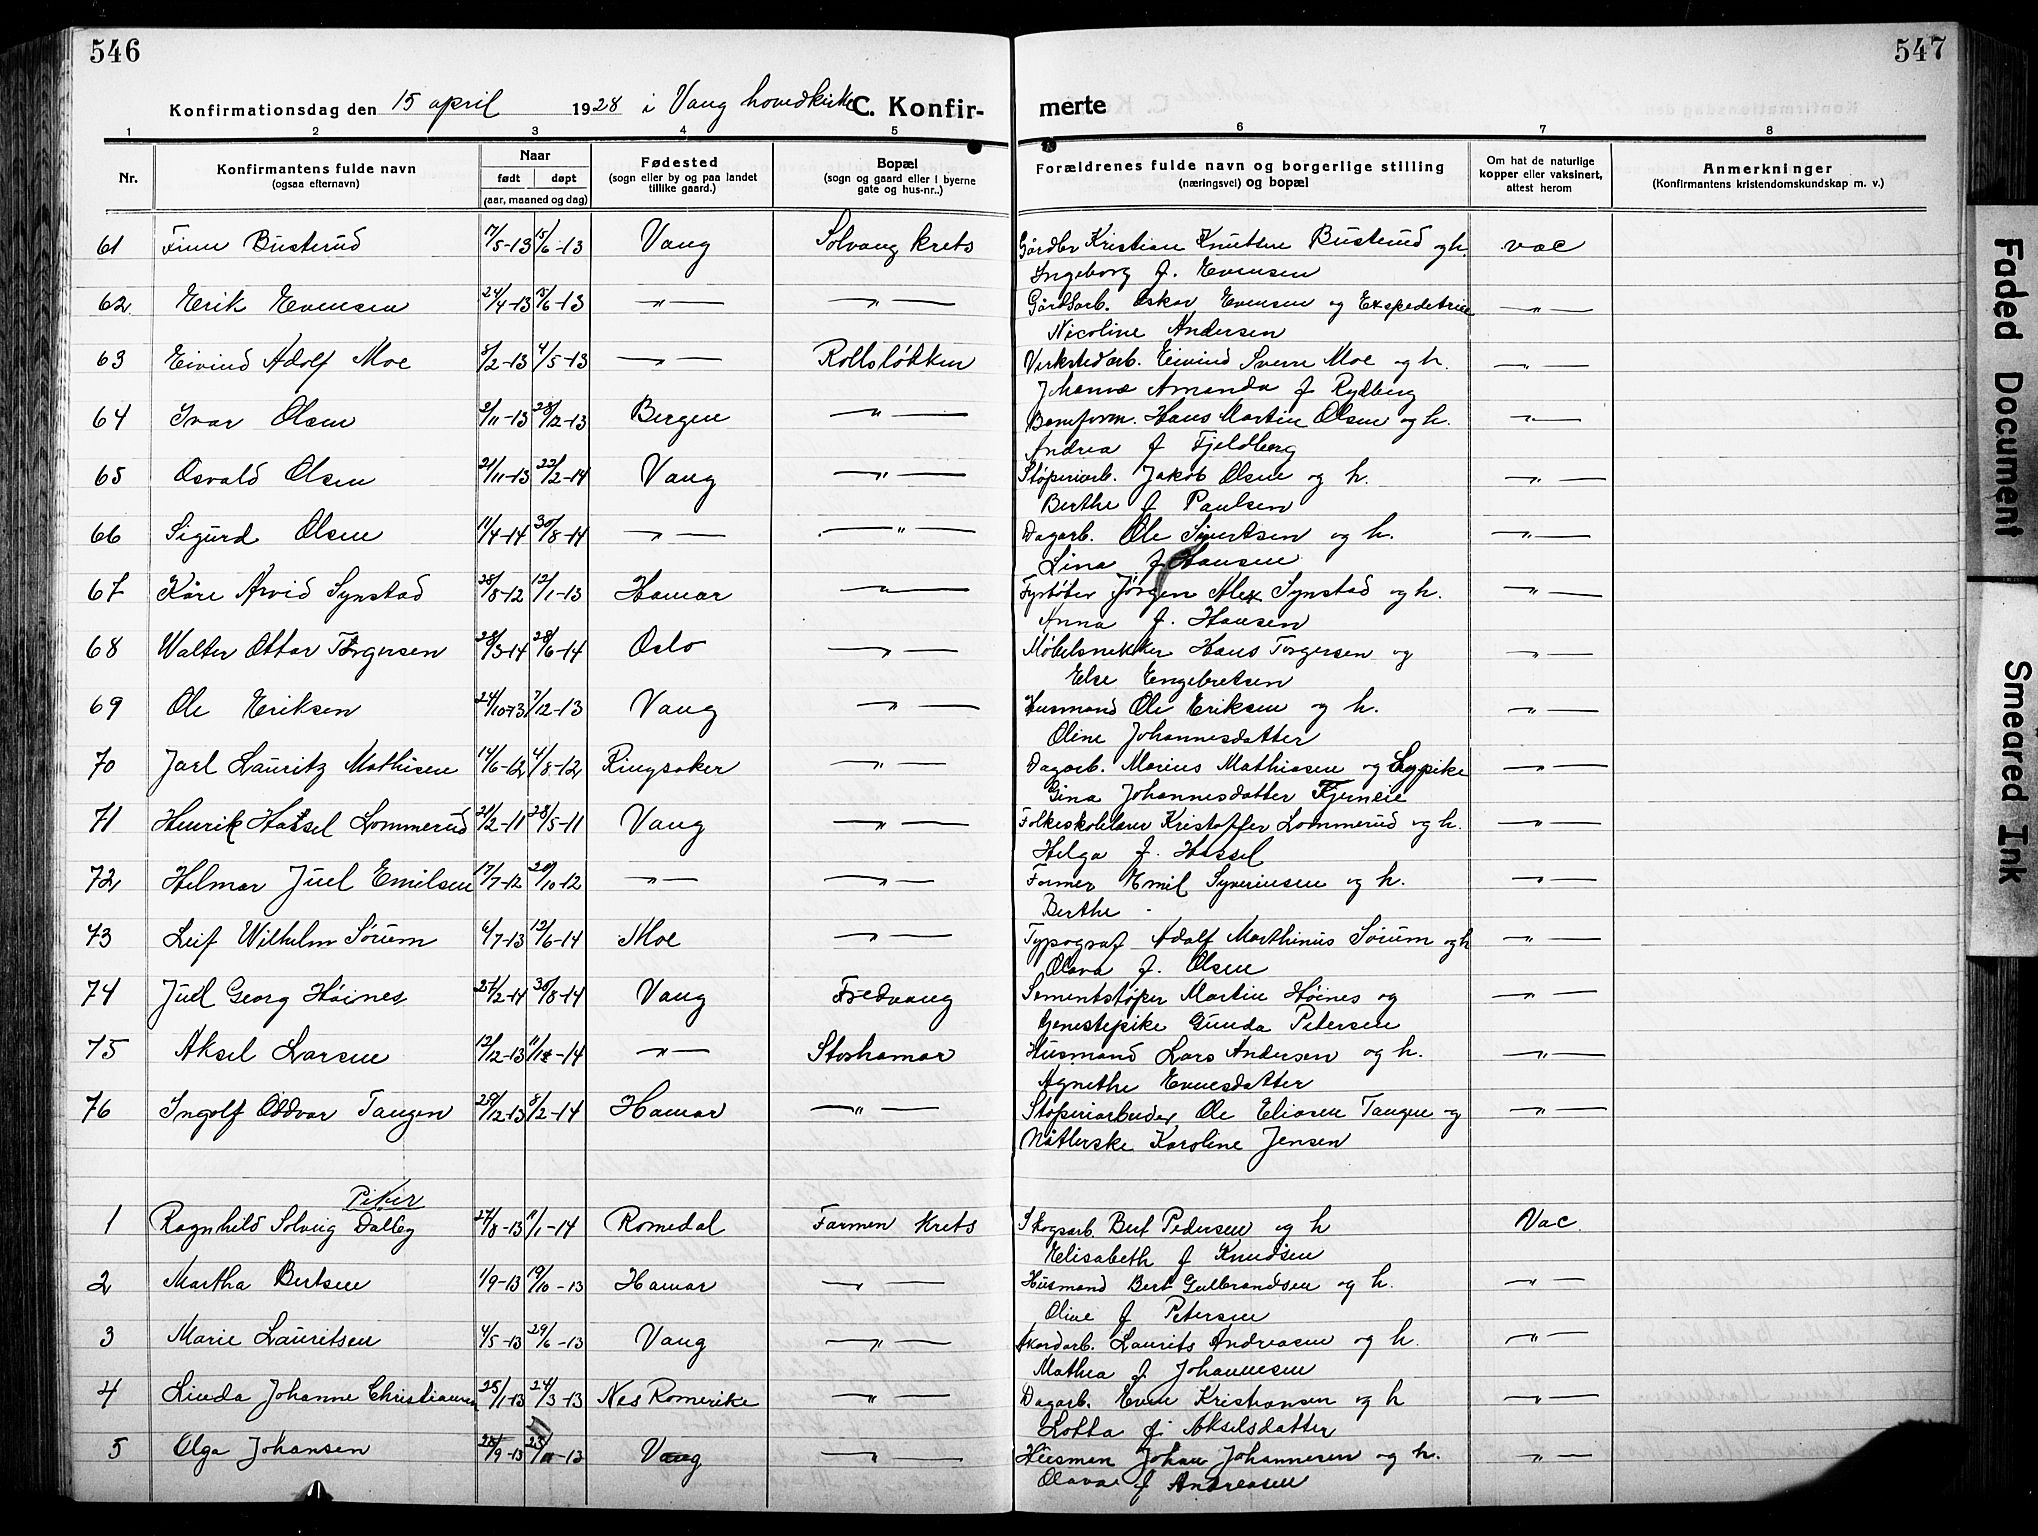 546
547
Konfirmationsdag den 15 april 1928 i Vang hovedkirke C. Konfir-
merte
1 2 3 4 5 6 7 8
Nr.
Konfirmantens fulde navn
(ogsaa efternavn)
Naar
født døpt
(aar, maaned og dag)
Fødested
(sogn eller by og paa landet
tillike gaard.)
Bopæl
(sogn og gaard eller i byerne
gate og hus-nr..)
Forældrenes fulde navn og borgerlige stilling
(næringsvei) og bopæl
Om hat de naturlige
kopper eller vaksinert,
attest herom
Anmerkninger
(Konfirmantens kristendomskundskap m. v.)
61 Finn Busterud 17/5-13 15/6-13 Vang Solvang krets Gårdbr Kristian Knutsen Busterud og h. vac
Ingeborg f. Evensen
62 Erik Evensen 24/4-13 15/6-13 —"— —"— Gårdsarb. Oskar Evensen og Expedetrise —"—
Nicoline Andersen
63 Eivind Adolf Moe 5/2-13 4/5-13 —"— Rollsløkken Verkstedarb. Eivind Sverre Moe og h. —"—
Johanna Amanda f Rydberg
64 Ivar Olsen 2/11-13 28/12-13 Bergen —"— Hans Martin Olsen og h. —"—
Andrea f Fjeldberg
65 Osvald Olsen 21/11-13 22/2-14 Vang —"— Støperiarb. Jakob Olsen og h. —"—
Berthe f Paulsen
66 Sigurd Olsen 11/4-14 30/8-14 —"— —"— Dagarb. Ole Sivertsen og h. —"—
Lina f Hansen
67 Kåre Arvid Synstad 28/8-12 12/1-13 Hamar —"— Fyrbøter Jörgen Alex Synstad og h. —"—
Anna f. Hansen
68 Walter Ottar Torgersen 28/3-14 28/6-14 Oslo —"— Møbelsnekker Hans Torgersen og —"—
Else Engebretsen
69 Ole Eriksen 24/10-13 7/12-13 Vang —"— Husmand Ole Eriksen og h. —"—
Oline Johannesdatter
70 Jarl Lauritz Mathisen 14/6-12 4/8-12 Ringsaker —"— Dagarb. Marius Mathiasen og —"—
Gina Johannesdatter Fjerneie
71 Henrik Hassel Lommerud 21/2-11 28/5-11 Vang —"— Folkeskolelærer Kristoffer Lommerud og h. —"—
Helga f. Hassel
72 Helmar Juel Emilsen 17/7-12 20/10-12 —"— —"— Former Emil Syverinsen og h. —"—
Berthe
73 Leif Wilhelm Sörum 6/7-13 12/6-14 Moe —"— Typograf Adolf Marthinus Sörum og h —"—
Olava f. Olsen
74 Juel Georg Höines 21/2-14 30/8-14 Vang Fredvang Sementstøper Martin Höines og —"—
Genestepike Gunda Petersen
75 Aksel Larsen 12/12-13 -14 —"— Storhamar Husmand Lars Andersen og h. —"—
Agnethe Evensdatter
76 Ingolf Oddvar Tangen 29/12-13 8/2-14 Hamar —"— Støperiarbeider Ole Eliasen Tangen og —"—
Nåtlerske Karoline Jensen
Piker
1 Ragnhild Solveig Dalby 27/8-13 11/1-14 Romedal Farmen krets Skogsarb. Bert Pedersen og h Vac.
Elisabeth f Knudsen
2 Martha Bertsen 1/9-13 19/10-13 Hamar —"— Husmand Bert Gulbrandsen og h. —"—
Oline f Petersen
3 Marie Lauritsen 4/5-13 29/6-13 Vang —"— Akordarb. Laurits Andreasen og h. —"—
Mathea f. Johannesen
4 Linda Johanne Christiansen 25/1-13 24/3-13 Nes Romerike —"— Dagarb. Even Kristiansen og h —"—
Lotta f. Akselsdatter
5 Olga Johansen 28/9-13 23/11-13 Vang —"— Husman Johan Johannesen og h. —"—
Olava f Andreasen
Faded Document
Smeared Ink